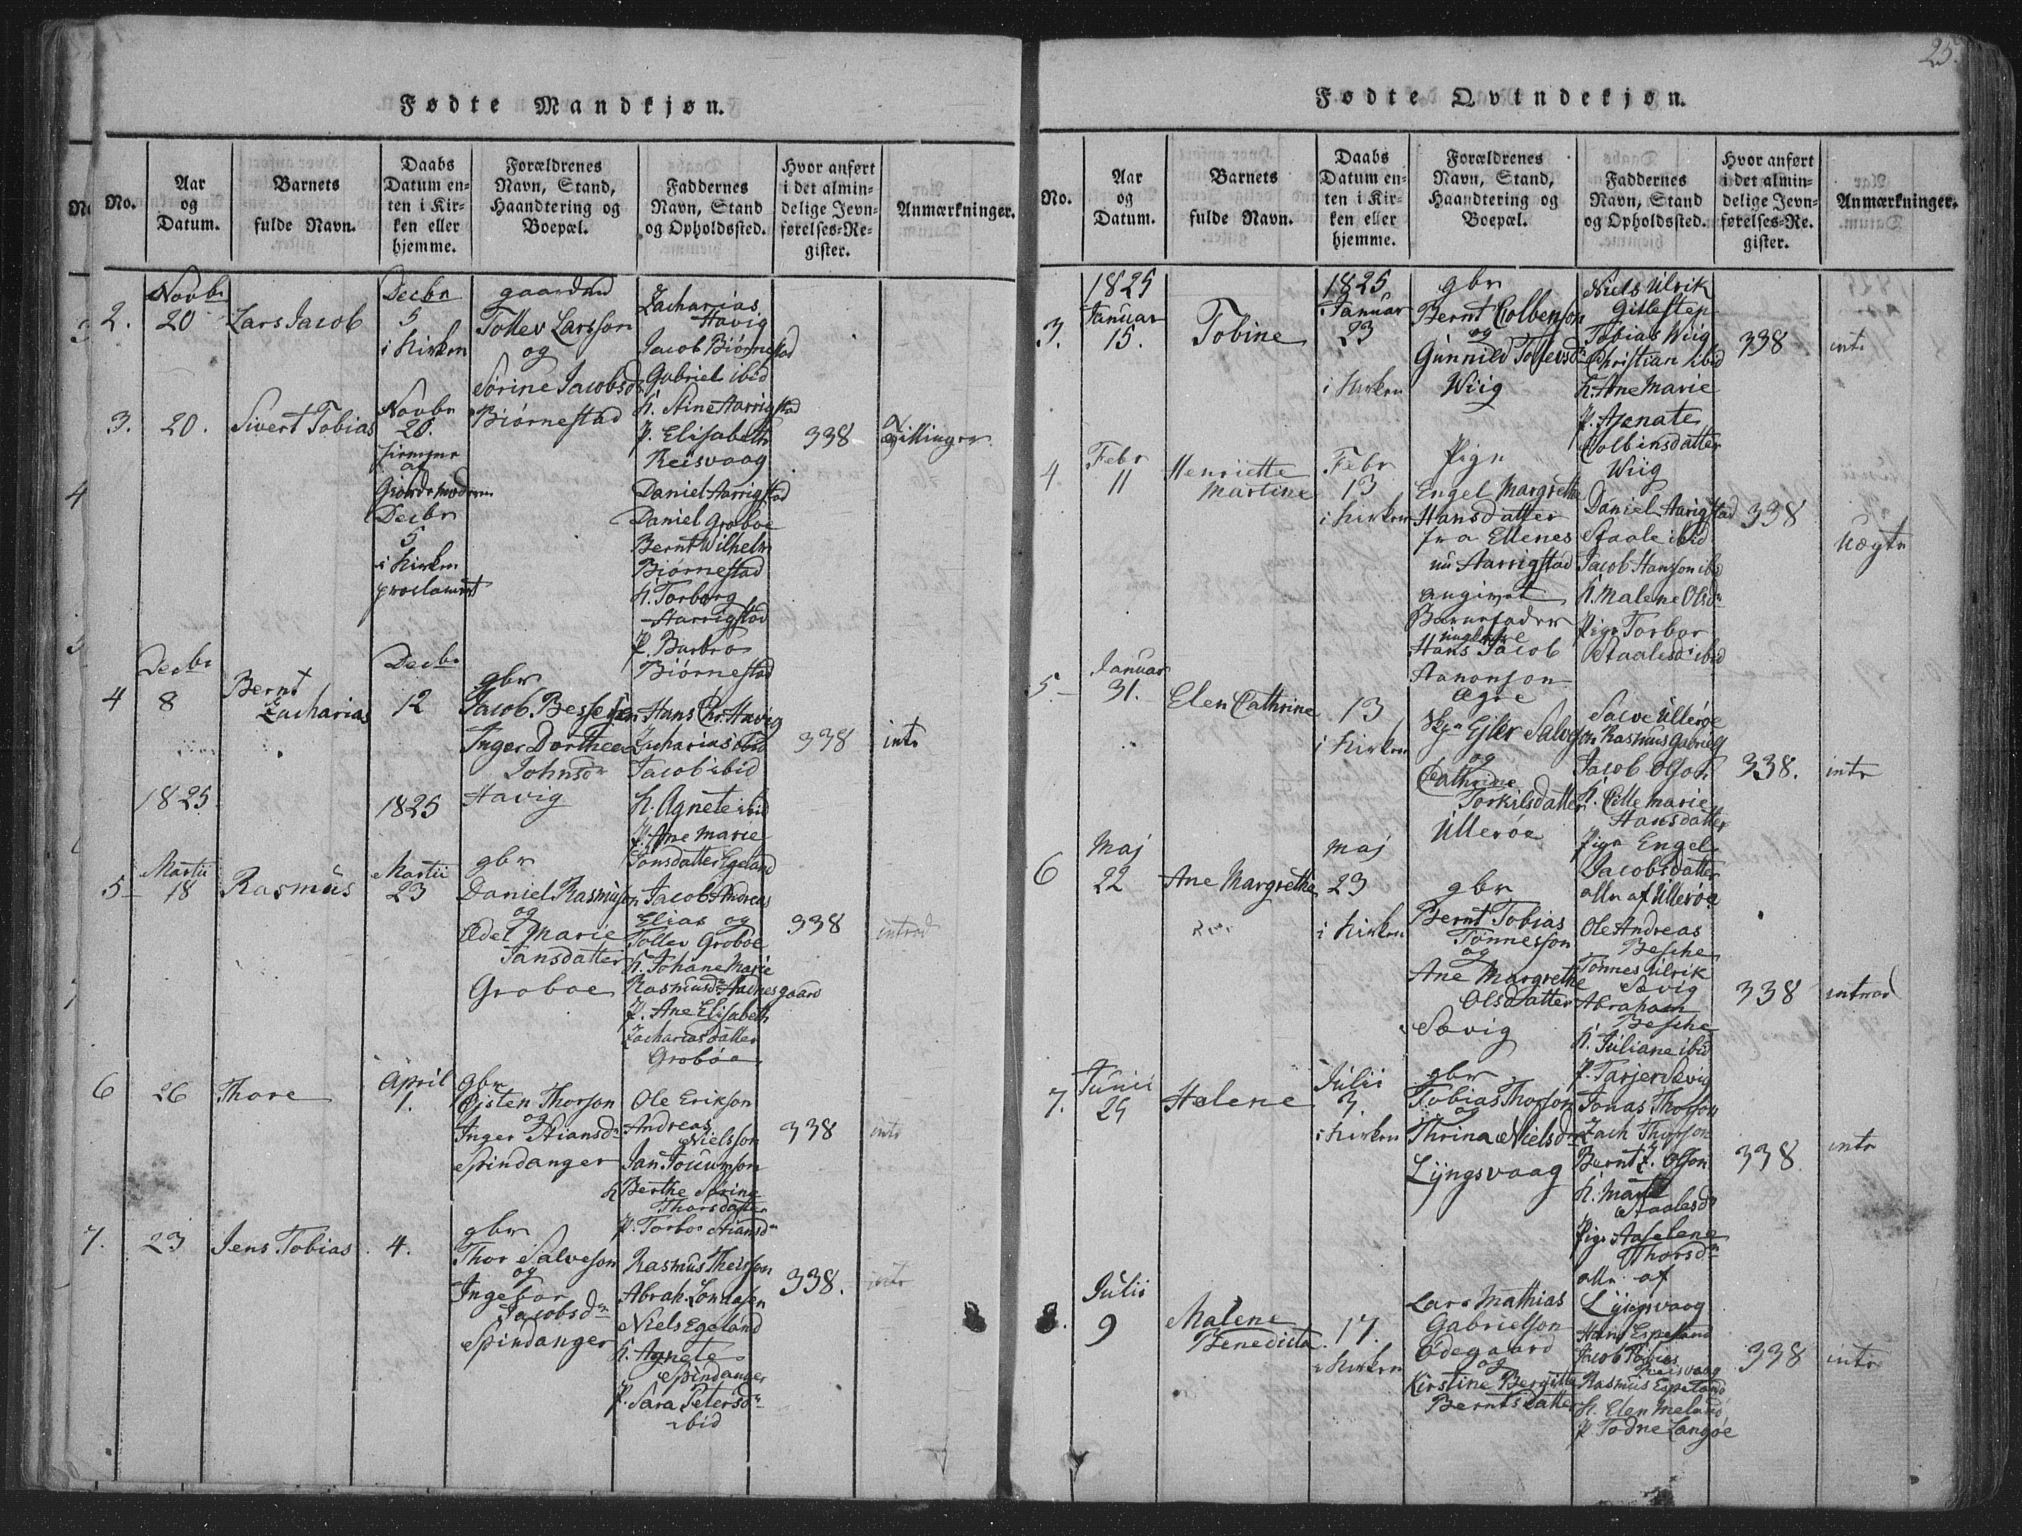 25.
Fødte Mandkjøn.
No.
Aar
og
Datum.
Barnets
fulde Navn.
Daabs
Datum en-
ten i Kir-
ken eller
hjemme.
Forældrenes
Navn, Stand,
Haandtering og
Boepæl.
Faddernes
Navn, Stand
og Opholdssted.
Hvor anført
i det almin-
delige Jevn-
førelses-Re-
gister.
Anmærkninger.
2.
Novbr
20
Lars Jacob
Decbr
5
i Kirken
gaardmd
Tollev Larsson
og
Sørine Jacobsdr
Biørnestad
Zacharias
Havig
Jacob Biørnestad
Gabriel ibid
K. Stine Aarrigstad
P. Elisabeth
Reisvaag
3.
20.
Sivert Tobias
Novbr
20.
hiemme
af
Giordemoderen
Decbr
5
i Kirken
proclameret
Daniel Aarrigstad
Daniel Groboe
Bernt Wilhelm
Biørnestad
K. Torborg
Aarrigstad
P. Barbro
Biørnestad
338
Tvillinger
4
Decbr
8
Bernt
Zacharias
Decbr
12
gbr
Jacob Bessesen
Inger Dorthea
Johnsdr
Havig
Hans Chr. Havig
Zacharias ibid
Jacob ibid
K. Agnete ibid
P. Ane Marie
Tonsdatter Egeland
338
intr
1825
1825
5
Martii
18
Rasmus
Martii
23
gbr
Daniel Rasmuson
og
Edel Marie
Jansdatter
Groboe
Jacob Andreas
Elias og
Tollev Groboe
K. Johane Marie
Rasmusdr Aadnesgaard
P. Ane Elisabeth
Zachariasdatter
Grobøe
338
introd
6
26
Thore
April
1.
gbr
Ojsten Thorson
og
Inger Stiansdr
Spindanger
Ole Erikson
Andreas
Nielsson
Jan Joaumson
K Berthe Sørine
Thorsdatter
P. Torbor Stiansdr
338
intr
7.
23
Jens Tobias
4.
gbr
Thor Salveson
og
Ingebor
Jacobsdr
Spindanger
Rasmus Theisson
Abrah. Londasen
Niels Egeland
K. Agnete
Spindanger
P. Sara Petersdr
ibid
338.
intr
Fødte Qvindekjøn.
No.
Aar
og
Datum.
Barnets
fulde Navn.
Daabs
Datum en-
ten i Kir-
ken eller
hjemme.
Forældrenes
Navn, Stand,
Haandtering og
Boepæl.
Faddernes
Navn, Stand
og Opholdssted.
Hvor anført
i det almin-
delige Jevn-
førelses-Re-
gister.
Anmærkninger.
3.
1825
Januar
15.
Tobine
1825
Januar
23
i Kirken
gbr
Bernt Colbenson
og
Gunnild Tollevsdr
Wiig
Niels Ulrik
Gitlesten
Tobias Wiig
Christian ibid
K. Ane Marie
P. Asenate
Colbensdatter
Wiig
338
intr
4
Febr
11
Henriette
Martine
Febr
13
i Kirken
Pige
Engel Margrethe
Hansdatter
fra Ellenes
nu Aarrigstad
angivet
Barnefader
ungkarl
Hans Jacob
Aanonson
Øgre
Daniel Aarigstad
Staale ibid
Jacob Hansson ibid
K. Malene Olsdr
Pige Torbor
Staalesdr ibid
338
Uægte
5
Januar
31.
Elen Cathrine
13
i Kirken
Ejler Salveson
og
Cathrine
Torkilsdatter
Ullerøe
Salve Ullerøe
Rasmus Gabriels
Jacob Olson
K. Cille Marie
Hansdatter
Pige Engel
Jacobsdatter
alle af Ullerøe
338.
intr
6
Maj
22
Ane Margrethe
Maj
23
i Kirken
gbr
Bernt Tobias
Tønnesson
og
Ane Margrethe
Olsdatter
Sævig
Ole Andreas
Besche
Tønnes Ulrik
Sævig
Abraham
Besche
K. Juliane ibid
P. Tarjer Sævig
338
introd
7.
Junii
25
Helene
Julii
3.
i Kirken
gbr
Tobias Thorson
og
Thrina Nielsdr
Lyngsvaag
Jonas Thorson
Zach Thorson
Bernt J. Olson
K. Marte
Staalesdr
Pige Aaselene
Thorsdr
alle af
Lyngsvaag
338.
intr
8.
Julii
9
Malene
Benedicta
17.
i Kirken
Lars Mathias
Gabrielson
Ødegaard
og
Kirstine Bergitte
Berntsdatter
Hans Espeland
Jacob Tobias
Reisvaag
Rasmus Espeland
K. Elen Meland
P. Todne Langøe
338
intr